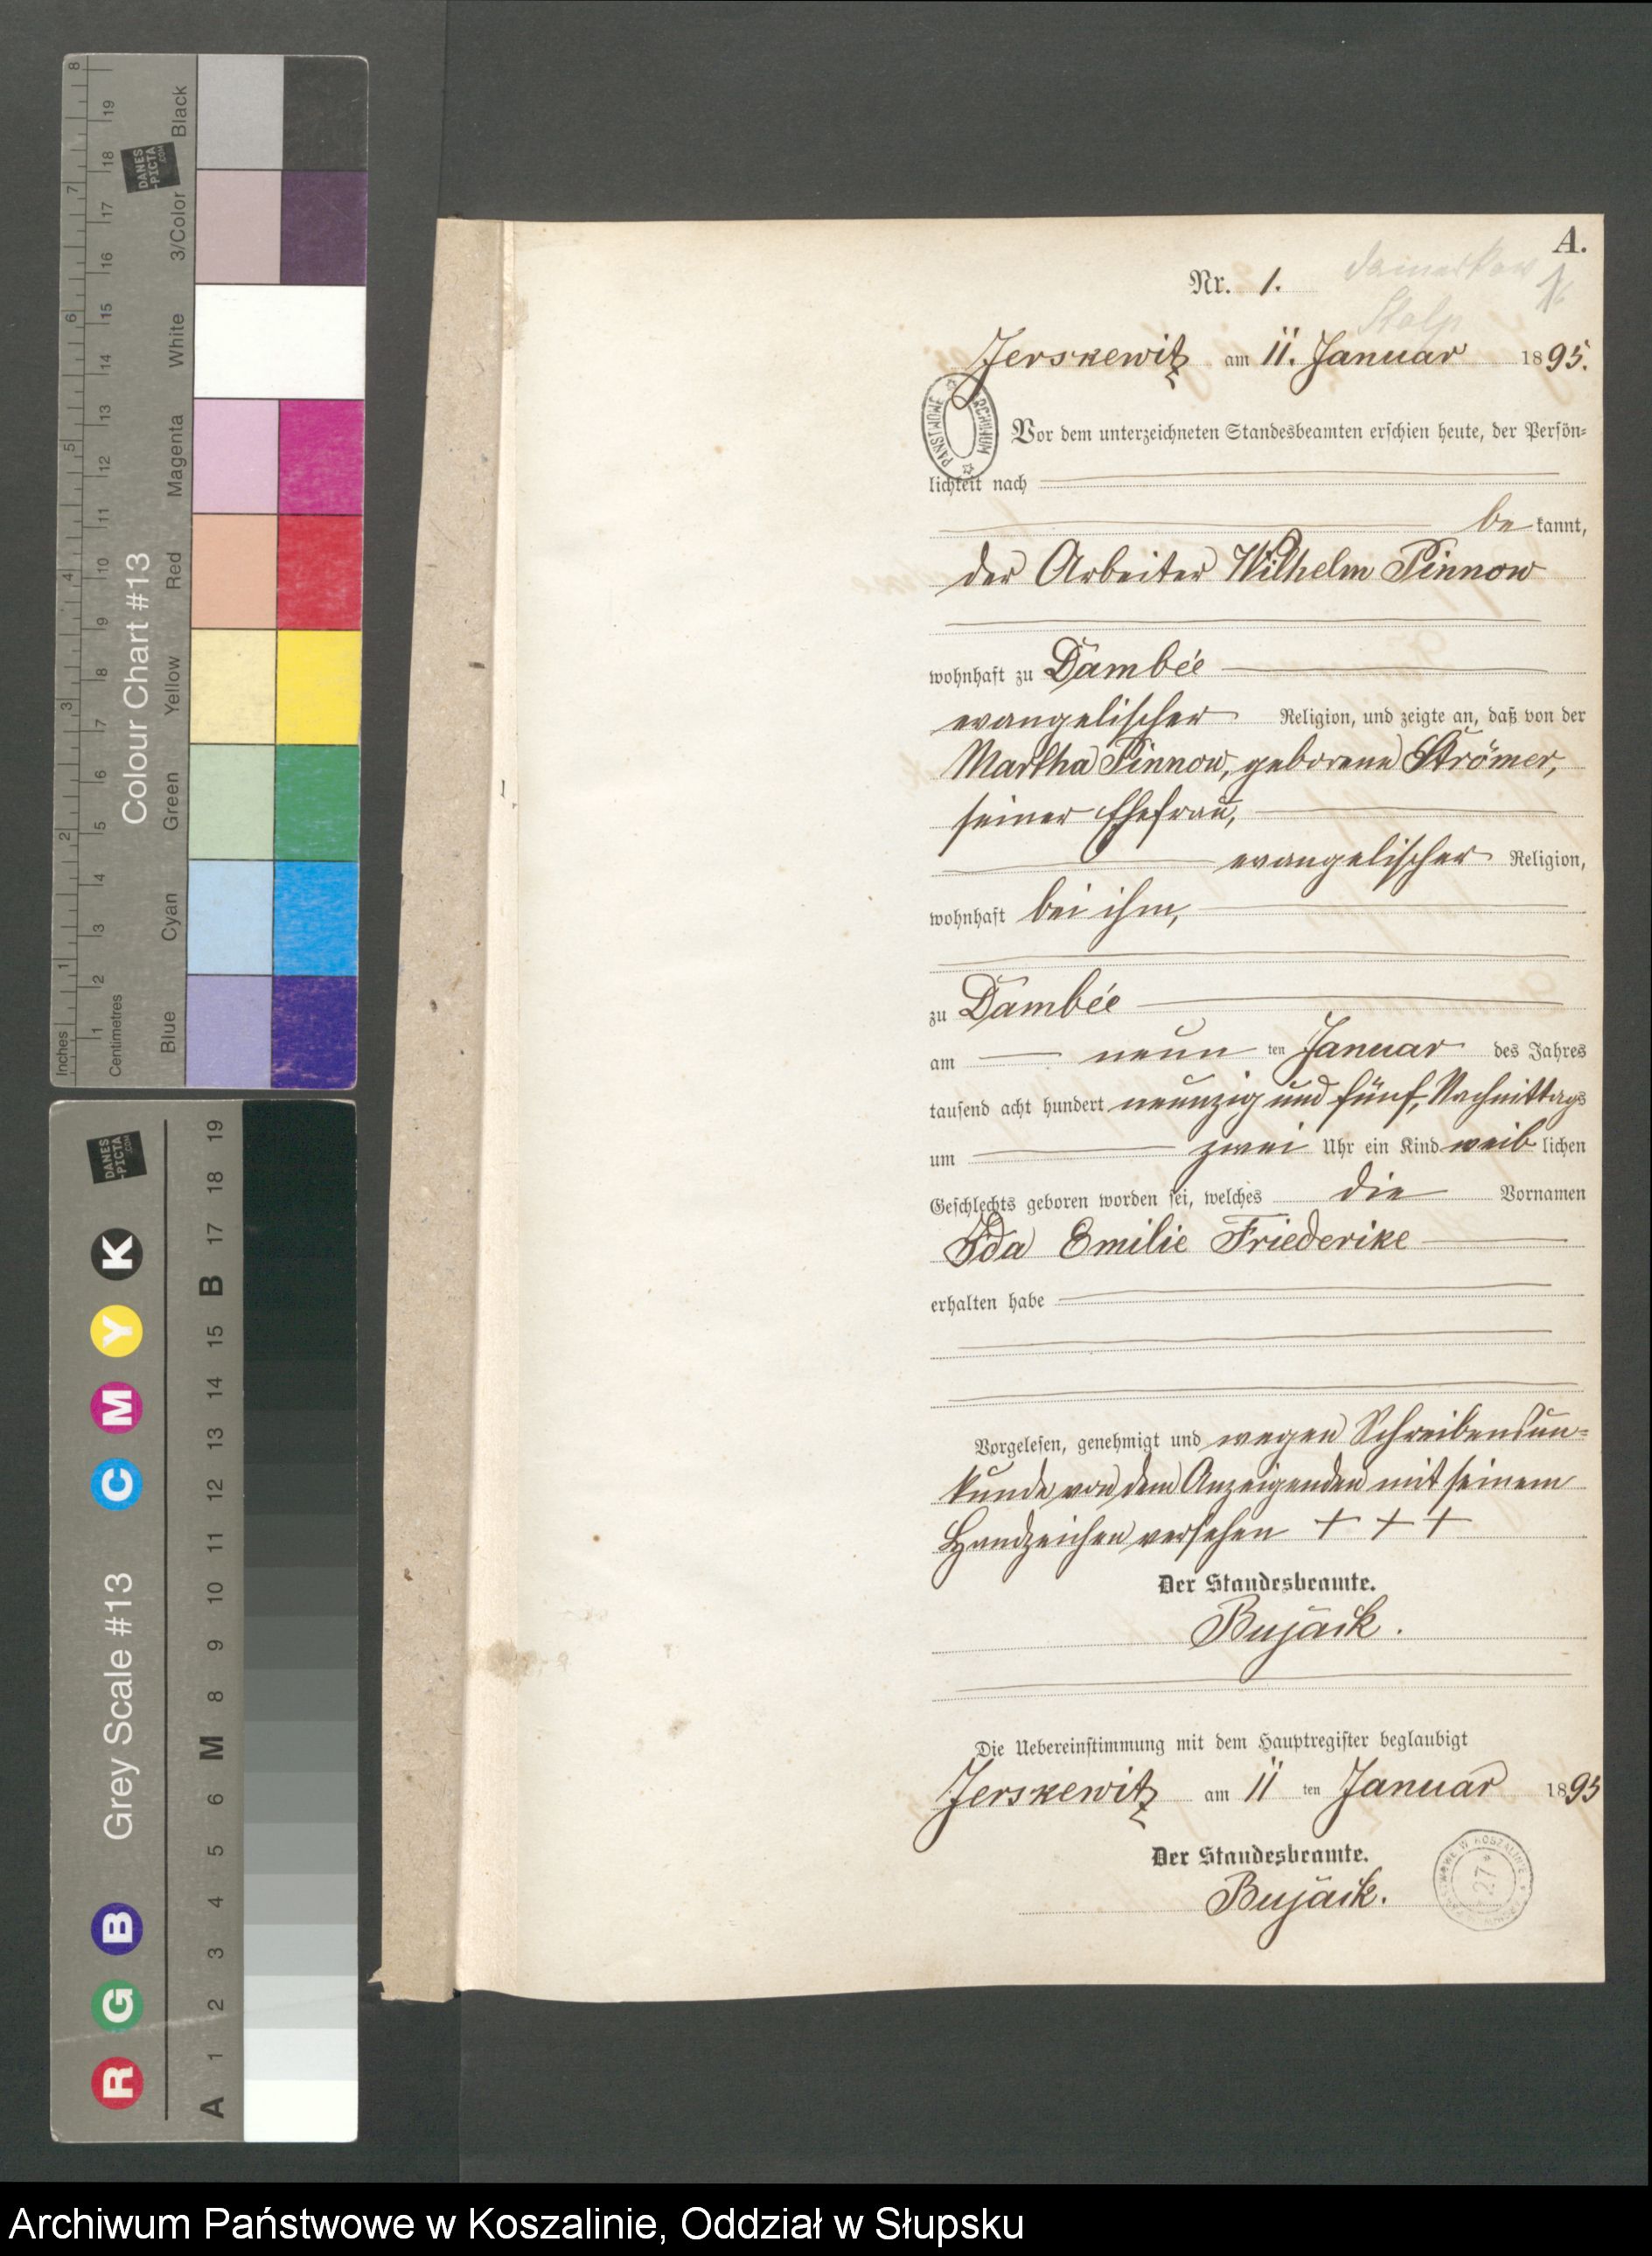 A.
Nr. 1.
Stolp
Jerskewitz am 11. Januar 1895.
Vor dem unterzeichneten Standesbeamten erschien heute, der Persön-
lichkeit nach
be kannt,
der Arbeiter Wilhelm Pinnow
wohnhaft zu Dambée
evangelischer Religion, und zeigte an, daß von der
Martha Pinnow, geborene Strömer,
seiner Ehefrau,
evangelischer Religion,
wohnhaft bei ihm,
zu Dambée
am neun ten Januar des Jahres
tausend acht hundert neunzig und fünf, Nachmittags
um zwei Uhr ein Kind weib lichen
Geschlechts geboren worden sei, welches die Vornamen
Ida Emilie Friederike
erhalten habe
Vorgelesen, genehmigt und wegen Schreibensun-
kunde von dem Anzeigenden mit seinem
Handzeichen versehen + + +
Der Standesbeamte.
Bujack.
Die Uebereinstimmung mit dem Hauptregister beglaubigt
Jerskewitz am 11 ten Januar 1895
Der Standesbeamte.
Bujack.
PAŃSTWOWE ARCHIWUM
27
Colour Chart #13
Black
3/Color
White
Magenta
Red
Yellow
Green
Cyan
Blue
Inches 1 2 3 4 5 6 7 8
Centimetres 1 2 3 4 5 6 7 8 9 10 11 12 13 14 15 16 17 18 19
DANES-PICTA.COM
Grey Scale #13
R G B C M Y K
A 1 2 3 4 5 6 M 8 9 10 11 12 13 14 15 B 17 18 19
DANES-PICTA.COM
Archiwum Państwowe w Koszalinie, Oddział w Słupsku